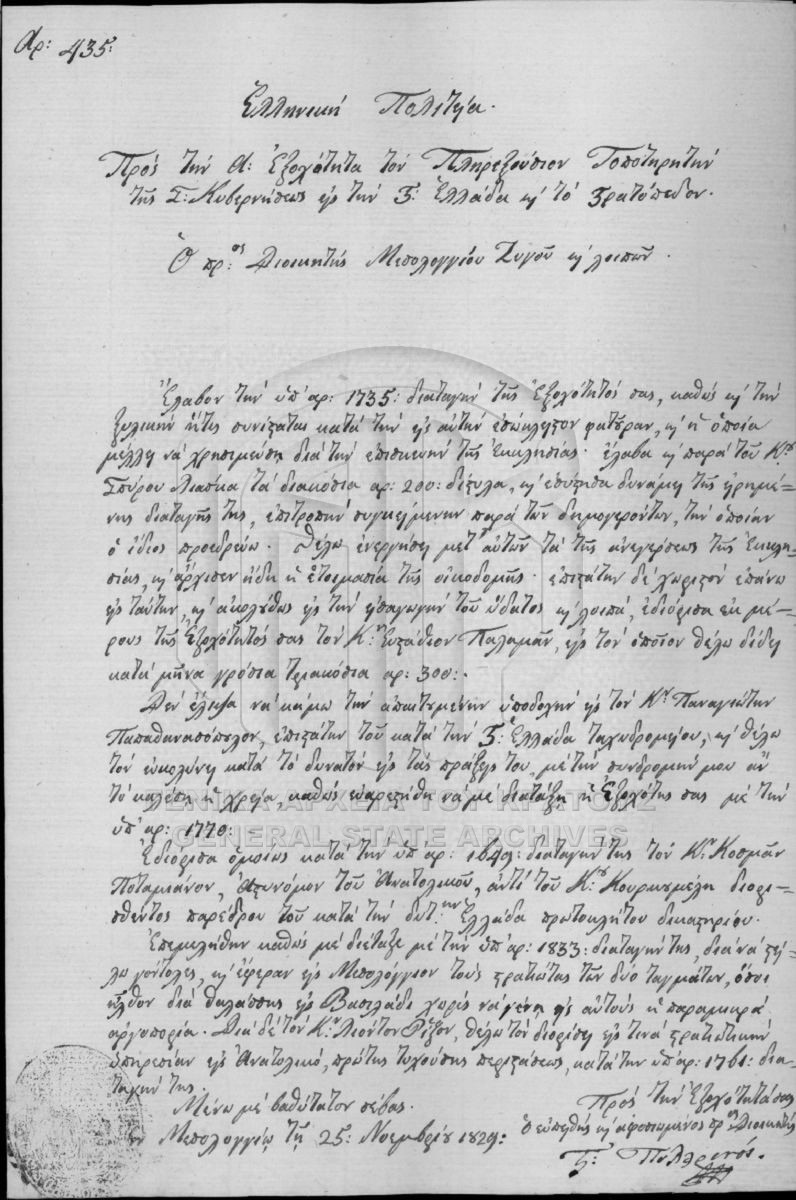 Αρ: 435:
Ἑλληνικὴ Πολιτεία.
Πρὸς τὴν Α: Ἐξοχότητα τὸν Πληρεξούσιον Τοποτηρητὴν
τῆς Σ: Κυβερνήσεως εἰς τὴν Σ: Ἑλλάδα κ᾽ τὸ Στρατόπεδον.
Ὁ πρ:ος Διοικητὴς Μεσολογγίου Ζυγοῦ κ᾽ λοιπῶν.
Ἔλαβον τὴν ὑπ᾽ ἀρ: 1735: διαταγὴν τῆς Ἐξοχότητός σας, καθὼς κ᾽ τὴν
ξυλικὴν ἥτις συνίσταται κατὰ τὴν εἰς αὐτὴν ἐσώκλειστον φατούραν, κ᾽ ἡ ὁποία
μέλλει νὰ χρησιμεύσῃ διὰ τὴν ἐπισκευὴν τῆς ἐκκλησίας. ἔλαβα κ᾽ παρὰ τοῦ Κ:ου
Σπύρου Λιάσκα τὰ διακόσια ἀρ: 200: δίστυλα, κ᾽ ἐσύστησα δυνάμει τῆς εἰρημέ-
νης διαταγῆς της, ἐπιτροπὴν συγκειμένην παρὰ τῶν δημογερόντων, τὴν ὁποίαν
ὁ ἴδιος προεδρεύω. Θέλω ἐνεργήσει μετ᾽ αὐτῶν τὰ τῆς ἀνεγέρσεως τῆς ἐκκλη-
σίας, κ᾽ ἄρχισεν ἤδη ἡ ἑτοιμασία τῆς οἰκοδομῆς. ἐπιστάτην δὲ χωριστὸν ἐπάνω
εἰς ταύτην, κ᾽ ἀκολούθως εἰς τὴν εἰσαγωγὴν τοῦ ὕδατος κ᾽ λοιπά, ἐδιόρισα ἐκ μέ-
ρους τῆς Ἐξοχότητός σας τὸν Κ:ον Εὐστάθιον Παλαμᾶν, εἰς τὸν ὁποῖον θέλω δίδει
κατὰ μῆνα γρόσια τριακόσια ἀρ: 300:.
Δὲν ἔλειψα νὰ κάμω τὴν ἀπαιτουμένην ὑποδοχὴν εἰς τὸν Κ:ον Παναγιώτην
Παπαθανασόπουλον, ἐπιστάτην τοῦ κατὰ τὴν Σ: Ἑλλάδα ταχυδρομείου, κ᾽ θέλω
τὸν εὐκολύνει κατὰ τὸ δυνατὸν εἰς τὰς πράξεις του, μὲ τὴν συνδρομήν μου ἂν
τὸ καλέσῃ ἡ χρεία, καθὼς εὐαρεστήθη νὰ μὲ διατάξῃ ἡ Ἐξοχότης σας μὲ τὴν
ὑπ᾽ ἀρ: 1770:
Ἐδιόρισα ὁμοίως κατὰ τὴν ὑπ᾽ ἀρ: 1649: διαταγήν της τὸν Κ:ον Κοσμᾶν
Ποταμιάνον, Ἀστυνόμον τοῦ Ἀνατολικοῦ, ἀντὶ τοῦ Κ:ου Κουρκουμέλη διορι-
σθέντος παρέδρου τοῦ κατὰ τὴν δυτ:ην Ἑλλάδα πρωτοκλήτου δικαστηρίου.
Ἐπεμελήθην καθὼς μὲ διέταξε μὲ τὴν ὑπ᾽ ἀρ: 1833: διαταγήν της, διὰ νὰ στεί-
λω γόντολες, κ᾽ ἔφεραν εἰς Μεσολόγγιον τοὺς στρατιώτας τῶν δύο ταγμάτων, ὅσοι
ἦλθον διὰ θαλάσσης εἰς Βασιλάδι χωρὶς νὰ γένῃ εἰς αὐτοὺς ἡ παραμικρὰ
ἀργοπορία. Διὰ δὲ τὸν Κ:ον Λιούτον Ρίζον, θέλω τὸν διορίσει εἰς τινὰ στρατιωτικὴν
ὑπηρεσίαν εἰς Ἀνατολικὸ, πρώτης τυχούσης περιστάσεως, κατὰ τὴν ὑπ᾽ ἀρ: 1761: δια-
ταγήν της.
Μένω μὲ βαθύτατον σέβας.
Πρὸς τὴν Ἐξοχότητά σας
ὁ εὐπειθὴς κ᾽ ἀφοσιωμένος πρ:ος Διοικητὴς
Ἐν Μεσολογγίῳ τῇ 25: Νοεμβρίου 1829:
ΓΕΝΙΚΑ ΑΡΧΕΙΑ ΤΟΥ ΚΡΑΤΟΥΣ
GENERAL STATE ARCHIVES